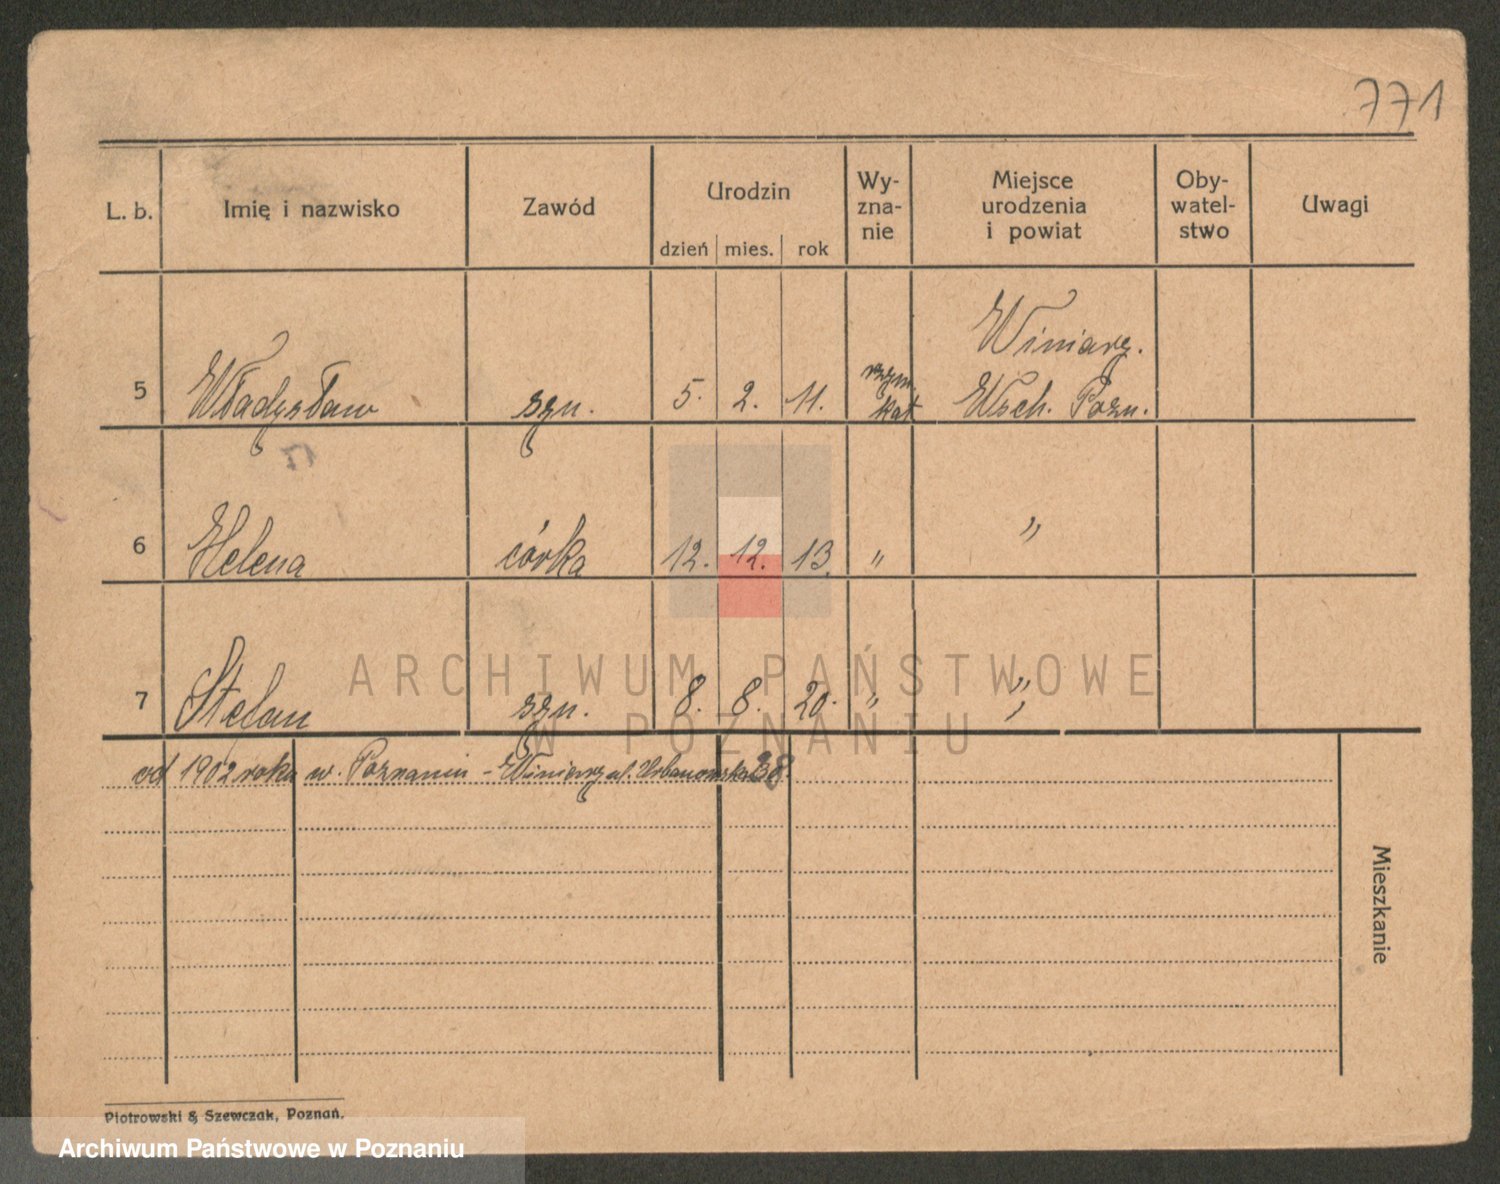 771
L. b. Imię i nazwisko Zawód Urodzin Wy-zna-nie Miejsce urodzenia i powiat Oby-watel-stwo Uwagi
dzień mies. rok
Winiary.
5 Władysław syn. 5. 2. 11. rzym. kat Wsch. Pozn.
6 Helena córka 12. 12. 13. " "
7 Stefan syn. 8. 8. 20. " "
od 1902 roku w. Poznaniu - Winiary ul. Urbanowska 38.
Mieszkanie
Piotrowski & Szewczak, Poznań.
ARCHIWUM PAŃSTWOWE
W POZNANIU
Archiwum Państwowe w Poznaniu